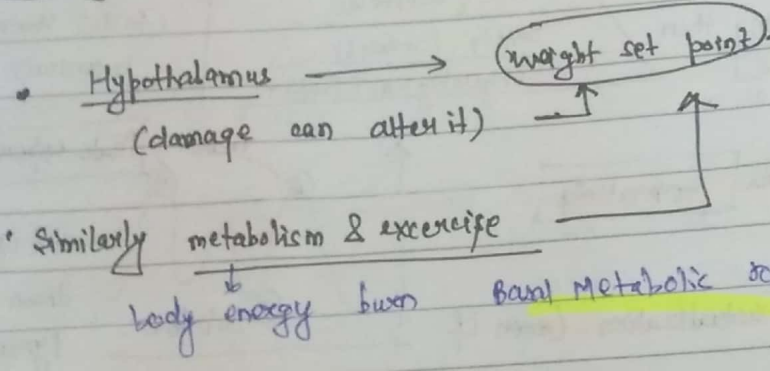 • Hypothalamus → weight set point.
(damage can alter it)
• Similarly metabolism & excercise
body energy burn Basal Metabolic